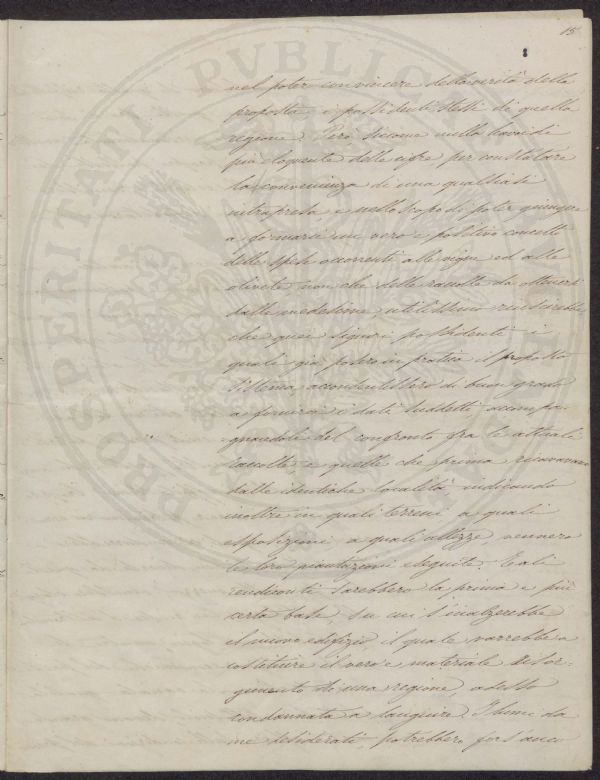 15
nel poter convincere della verità della
proposta i possidenti stessi di quella
regione. Però siccome nulla havvi di
più eloquente delle cifre per constatare
la convenienza di una qualsiasi
intrapresa e nello scopo di poter giungere
a formarsi un vero e positivo concetto
delle spese occorrenti alle vigne ed alle
olivete non che delle raccolte da ottenersi
dalle medesime utilissimo riuscirebbe,
che quei signori possidenti i
quali già posero in pratica il proposto
sistema, accondentessero di buon grado
a fornire i dati suddetti accompa-
gnandoli del confronto fra le attuali
raccolte e quelle che prima ricavavano
dalle identiche località indicando
inoltre in quali terreni a quali
esposizioni, a quali altezze, vennero
le loro piantagioni eseguite. Tali
rendiconti sarebbero la prima e più
certa base, su cui s'inalzerebbe
il nuovo edifizio, il quale varrebbe a
costituire il vero e materiale risor-
gimento di una regione adesso
condannata a languire. I lumi da
me desiderati, potrebbero fors'anco
PROSPERITATI PVBLICAE AV